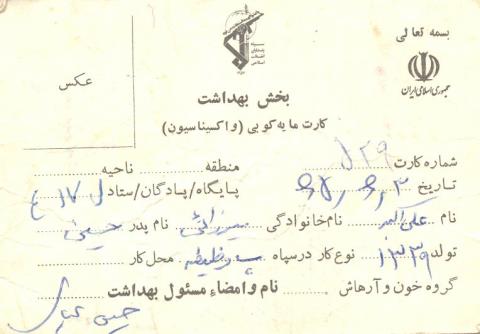 بسمه تعالی
جمهوری اسلامی ایران
عکس
بخش بهداشت
کارت مایه کوبی (واکسیناسیون)
شماره کارت ۲۹ ل منطقه ناحیه
تاریخ پایگاه/پادگان/ستاد ل ۱۷
نام علی اکبر نام خانوادگی میرزائی نام پدر حسین
تولد ۱۳۳۹ نوع کار درسپاه محل کار
گروه خون و آرهاش نام و امضاء مسئول بهداشت